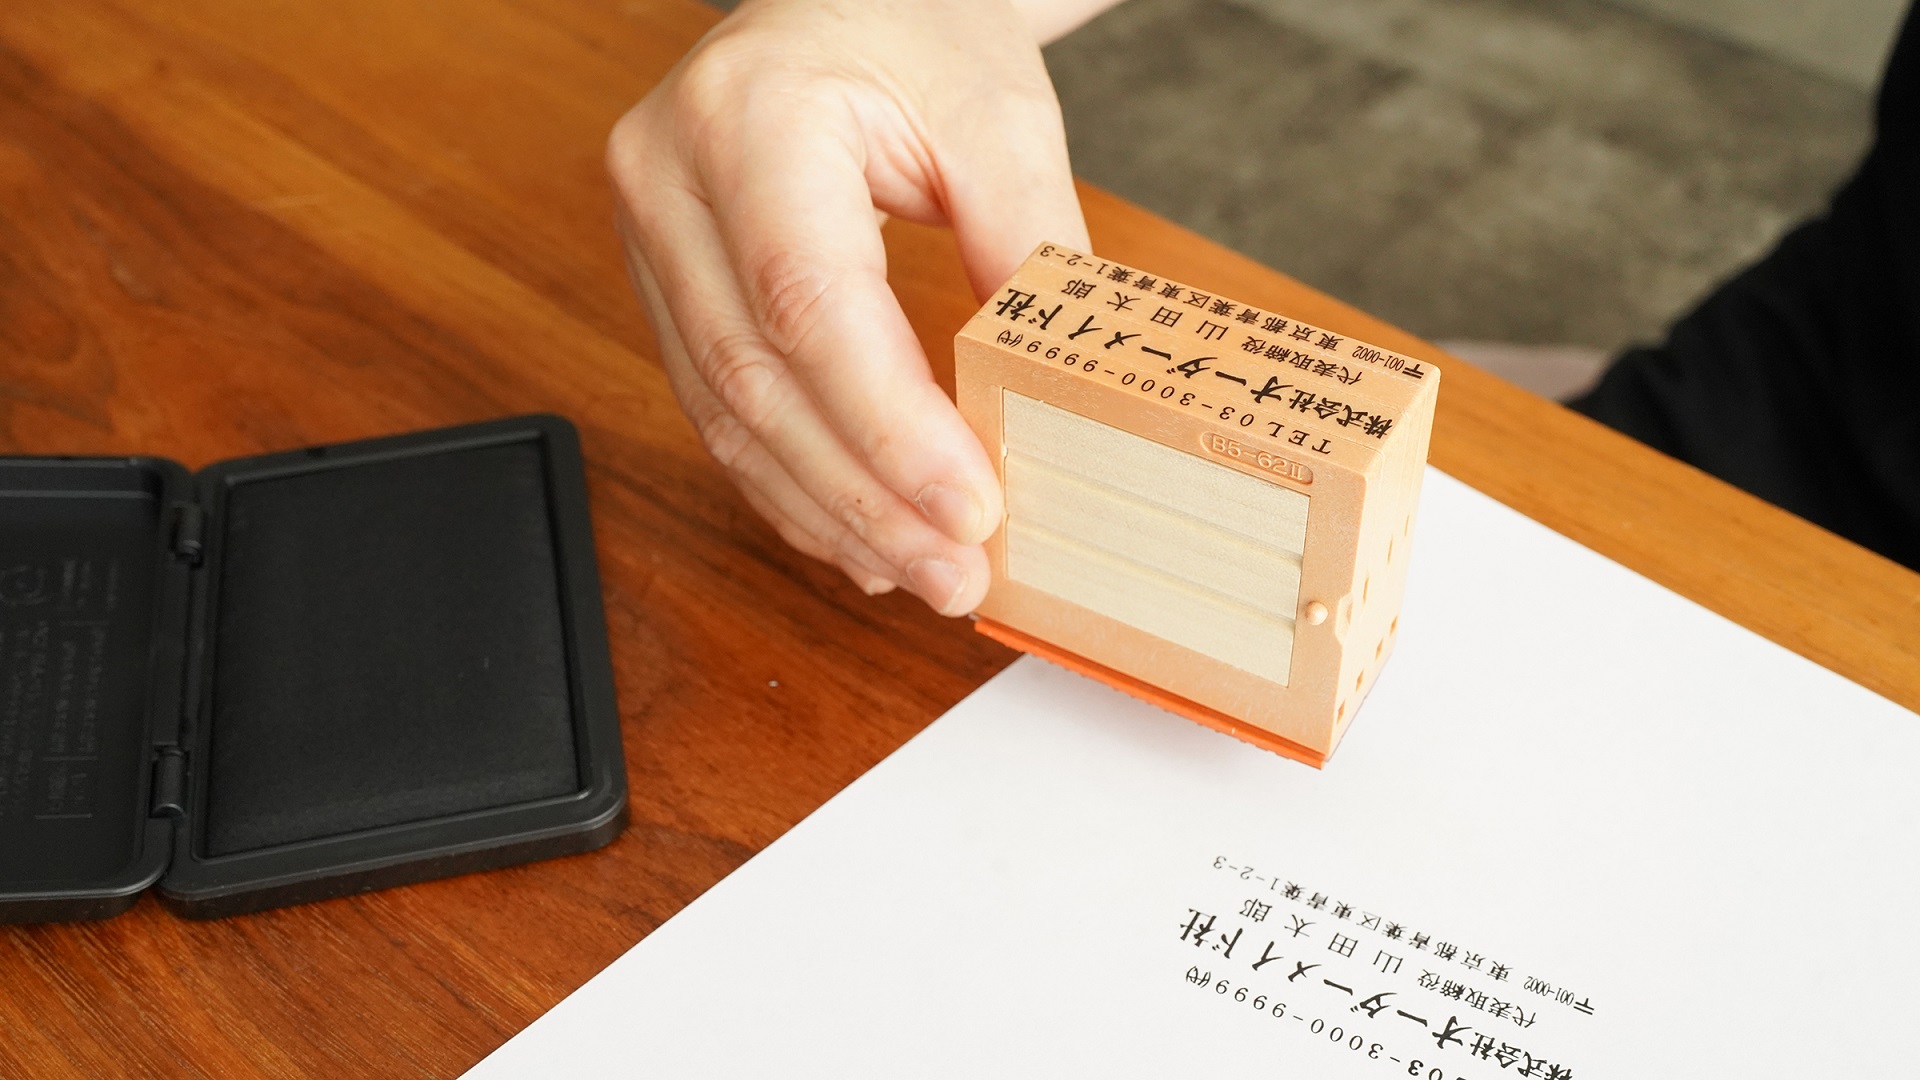 〒001-0002 東京都青葉区東青葉1-2-3
代表取締役 山田太郎
株式会社オーダーメイド社
TEL 03-3000-9999㈹
B5-62II
〒001-0002 東京都青葉区東青葉1-2-3
代表取締役 山田太郎
株式会社オーダーメイド社
03-3000-9999㈹